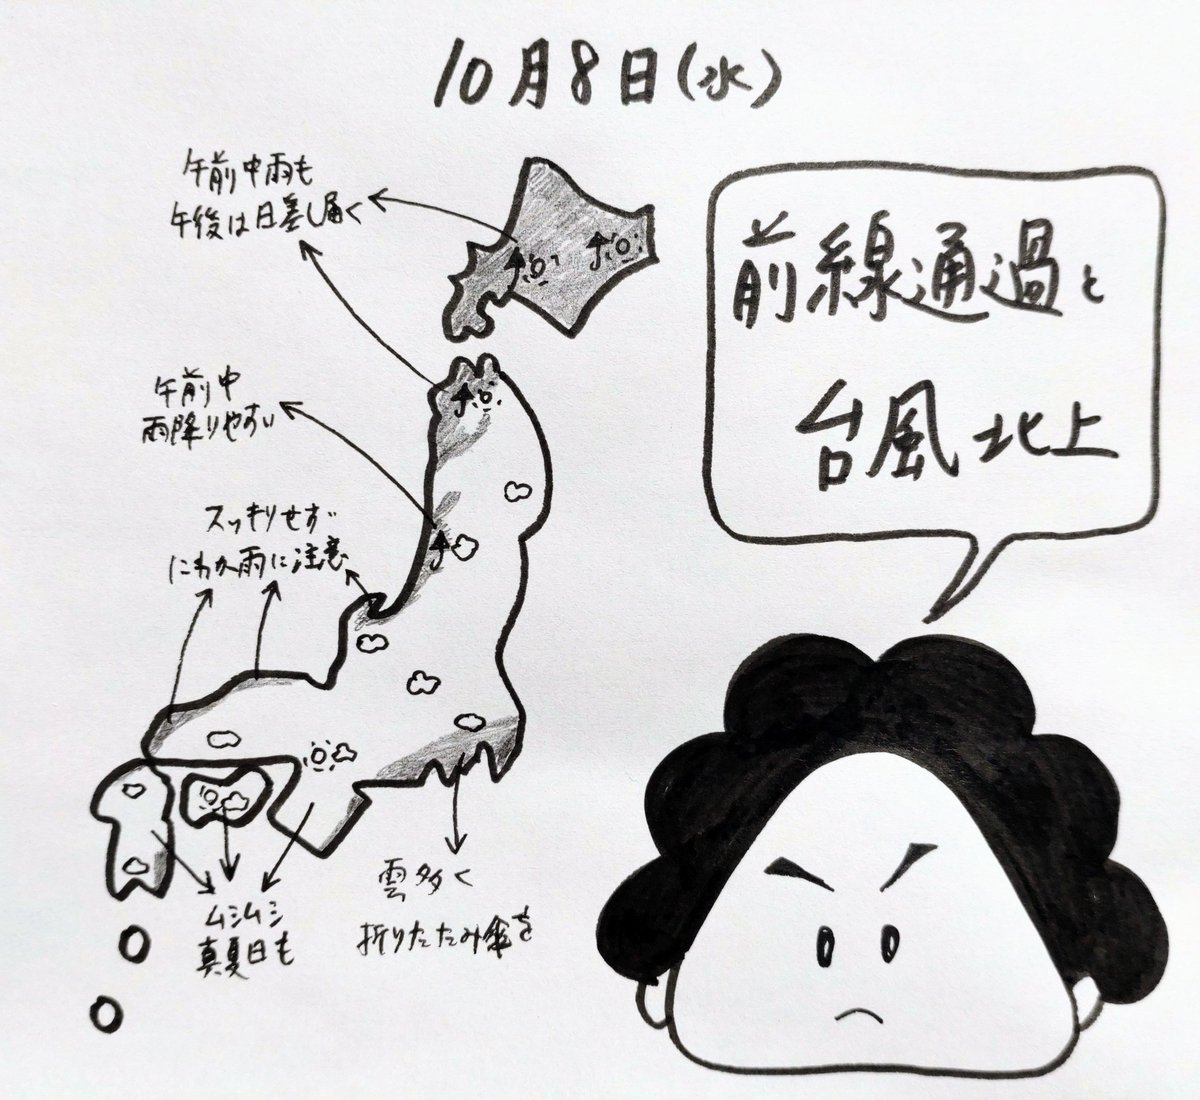 10月8日(水)
午前中雨も
午後は日差し届く
前線通過と
台風北上
午前中
雨降りやすい
スッキリせず
にわか雨に注意
雲多く
折りたたみ傘を
ムシムシ
真夏日も